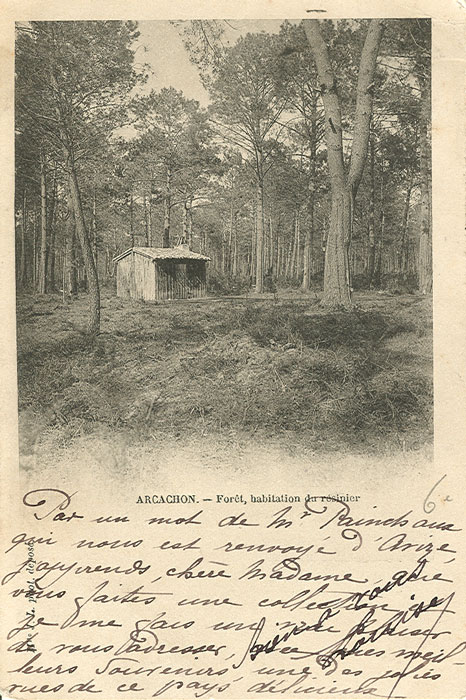 ARCACHON. — Forêt, habitation du résinier
6
Par un mot de Mr Painchaux
qui nous est renvoyé d'Arizé
j'apprends, chère Madame, que
vous faites une collection.
Je me fais un
de vous adresser, avec mes meil-
leurs souvenirs une des jolies
vues de ce pays délicieux